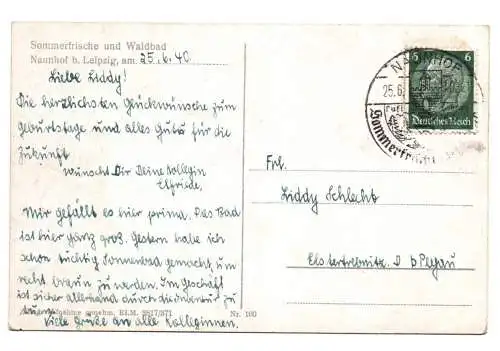 Sommerfrische und Waldbad
Naunhof b. Leipzig, am 25.6.40
Liebe Liddy!
Die herzlichsten Glückwünsche zum
Geburtstage und alles Gute für die
Zukunft
wünscht Dir Deine Kollegin
Elfriede.
Mir gefällt es hier prima. Das Bad
ist hier ganz groß. Gestern habe ich
schon tüchtig Sonnenbad gemacht, um
recht braun zu werden. Im Geschäft
ist sicher allerhand durch die Inventur zu
tun.
Viele Grüße an alle Kolleginnen.
genehm. RLM
Nr. 160
NAUNHOF
25.6.
Sommerfrische
6
6
Deutsches Reich
Frl.
Liddy Schlecht
Elstertrebnitz b Pegau